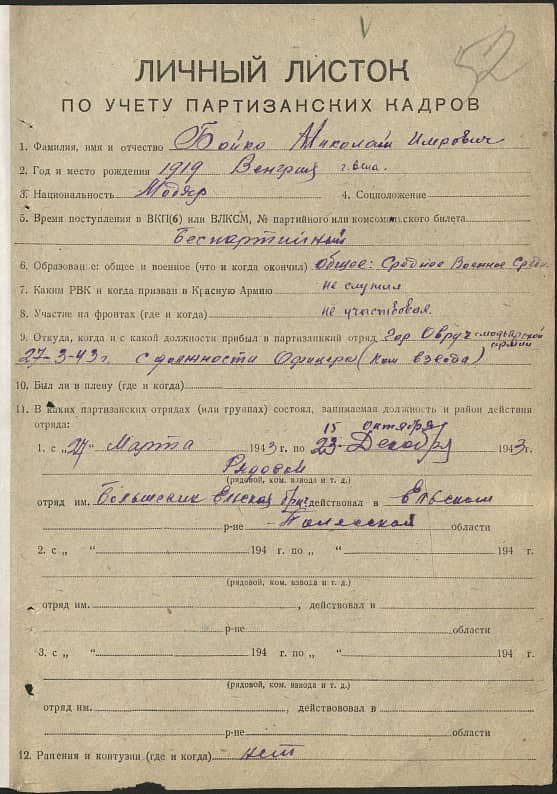 52
ЛИЧНЫЙ ЛИСТОК
ПО УЧЕТУ ПАРТИЗАНСКИХ КАДРОВ
1. Фамилия, имя и отчество Бойко Николай Имрович
2. Год и место рождения 1919 Венгрия г.
3. Национальность Модяр 4. Соцположение
5. Время поступления в ВКП(б) или ВЛКСМ, № партийного или комсомольского билета
Беспартийный
6. Образование: общее и военное (что и когда окончил) общее: Среднее Военное Средн.
7. Каким РВК и когда призван в Красную Армию не служил
8. Участие на фронтах (где и когда) не участвовал
9. Откуда, когда и с какой должности прибыл в партизанский отряд Гор Овруч модьарской армии
27-3-43 г. с должности Офицера (ком взвода)
10. Был ли в плену (где и когда)
11. В каких партизанских отрядах (или группах) состоял, занимаемая должность и район действия
отряда:
15 октября
1. с „27“ Марта 1943 г. по 23 Декабря 1943 г.
Рядовой
(рядовой, ком. взвода и т. д.)
отряд им. Большевик Ельской бриг действовал в Ельском
р-не Полесской области
2. с „ “ 194 г. по „ “ 194 г.
(рядовой, ком. взвода и т. д.)
отряд им. , действовал в
р-не области
3. с „ “ 194 г. по „ “ 194 г.
(рядовой, ком. взвода и т. д.)
отряд им. , действововал в
р-не области
12. Ранения и контузии (где и когда) нет